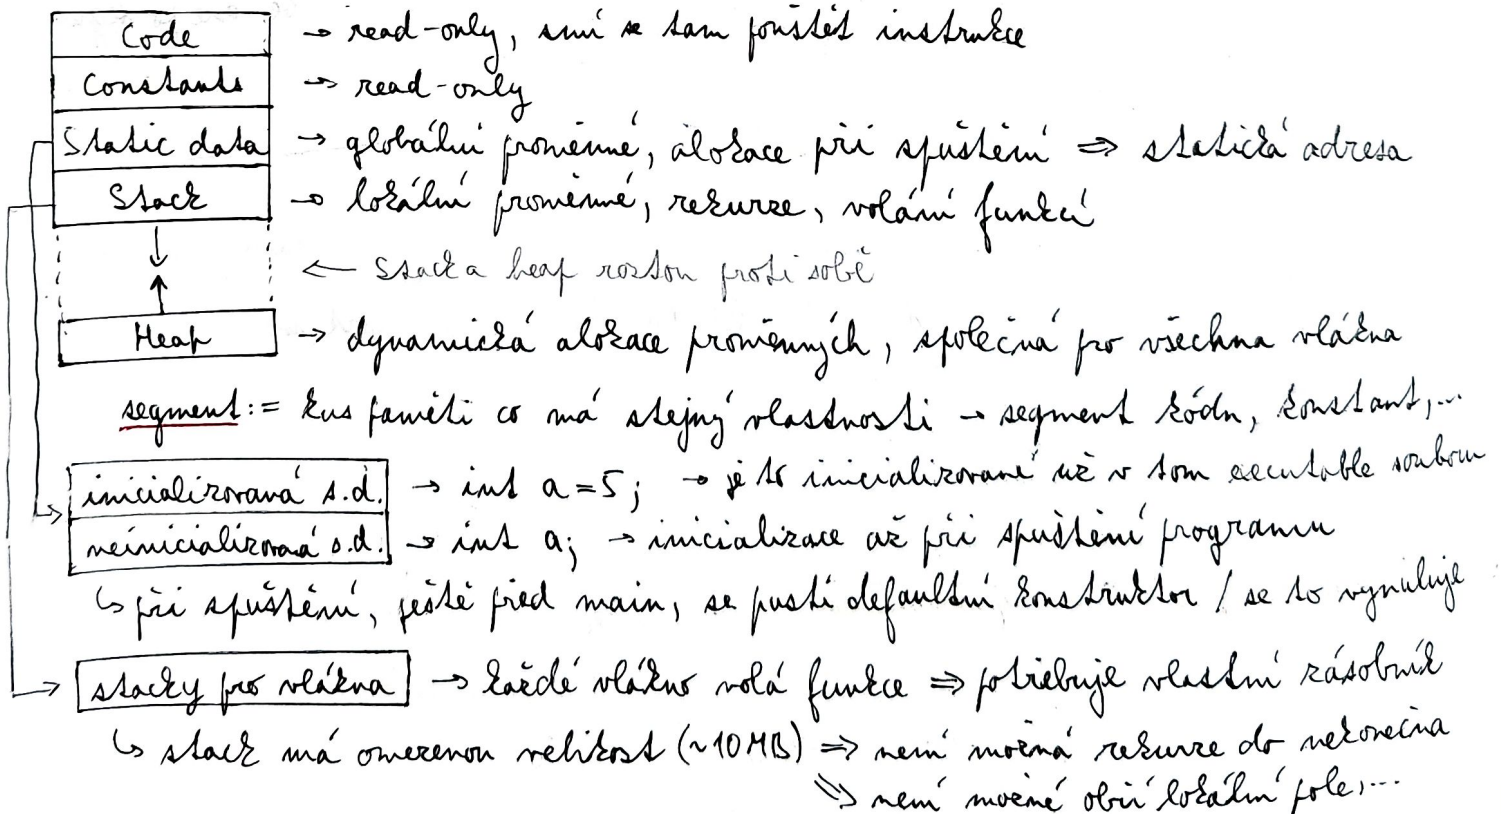 Code → read-only, smí se tam pouštět instrukce
Constants → read-only
Static data → globální proměnné, alokace při spuštění ⇒ statická adresa
Stack → lokální proměnné, rekurze, volání funkcí
← Stack a heap rostou proti sobě
Heap → dynamická alokace proměnných, společná pro všechna vlákna
segment := kus paměti co má stejný vlastnosti → segment kódu, konstant,...
inicializovaná s.d. → int a=5; → je to inicializované už v tom executable souboru
neinicializovaná s.d. → int a; → inicializace až při spuštění programu
↳ při spuštění, ještě před main, se pustí defaultní konstruktor / se to vynuluje
stacky pro vlákna → každé vlákno volá funkce ⇒ potřebuje vlastní zásobník
↳ stack má omezenou velikost (~10MB) ⇒ není možná rekurze do nekonečna
⇒ není možné obří lokální pole,...